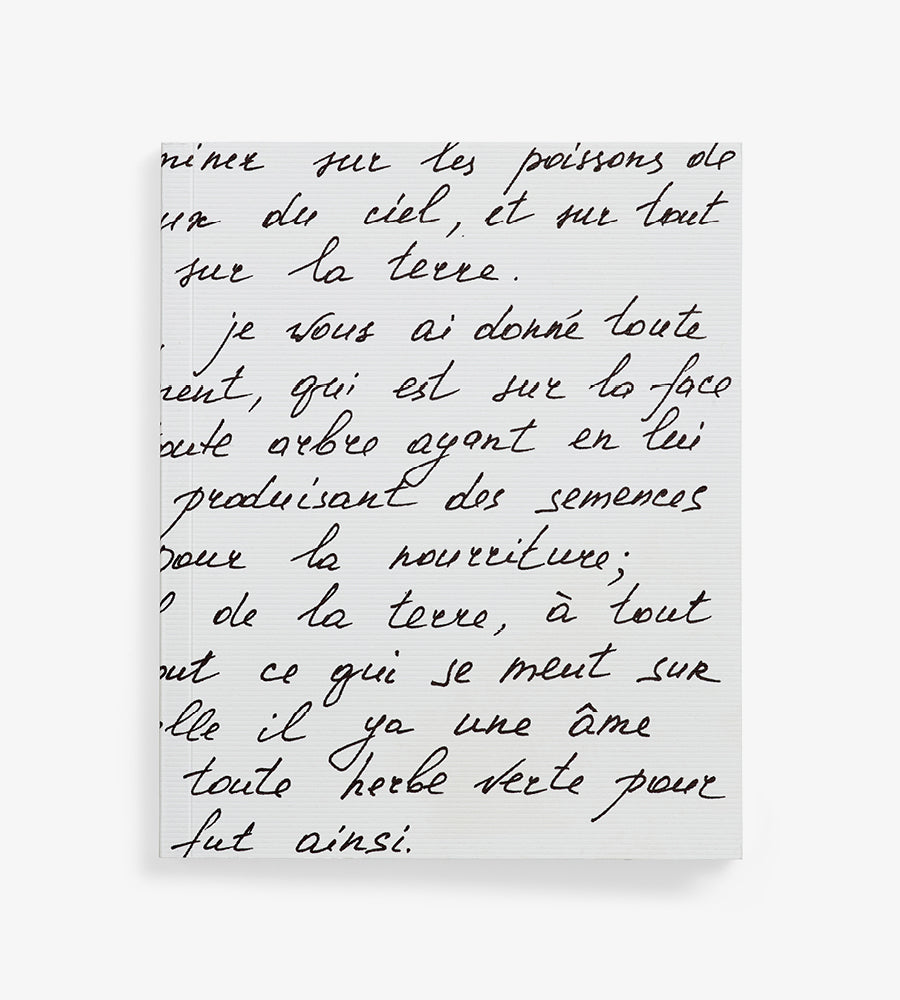 miner sur les poissons de
ux du ciel, et sur tout
sur la terre.
, je vous ai donné toute
ment, qui est sur la face
oute arbre ayant en lui
produisant des semences
pour la nourriture;
l de la terre, à tout
out ce qui se meut sur
elle il ya une âme
toute herbe verte pour
fut ainsi.